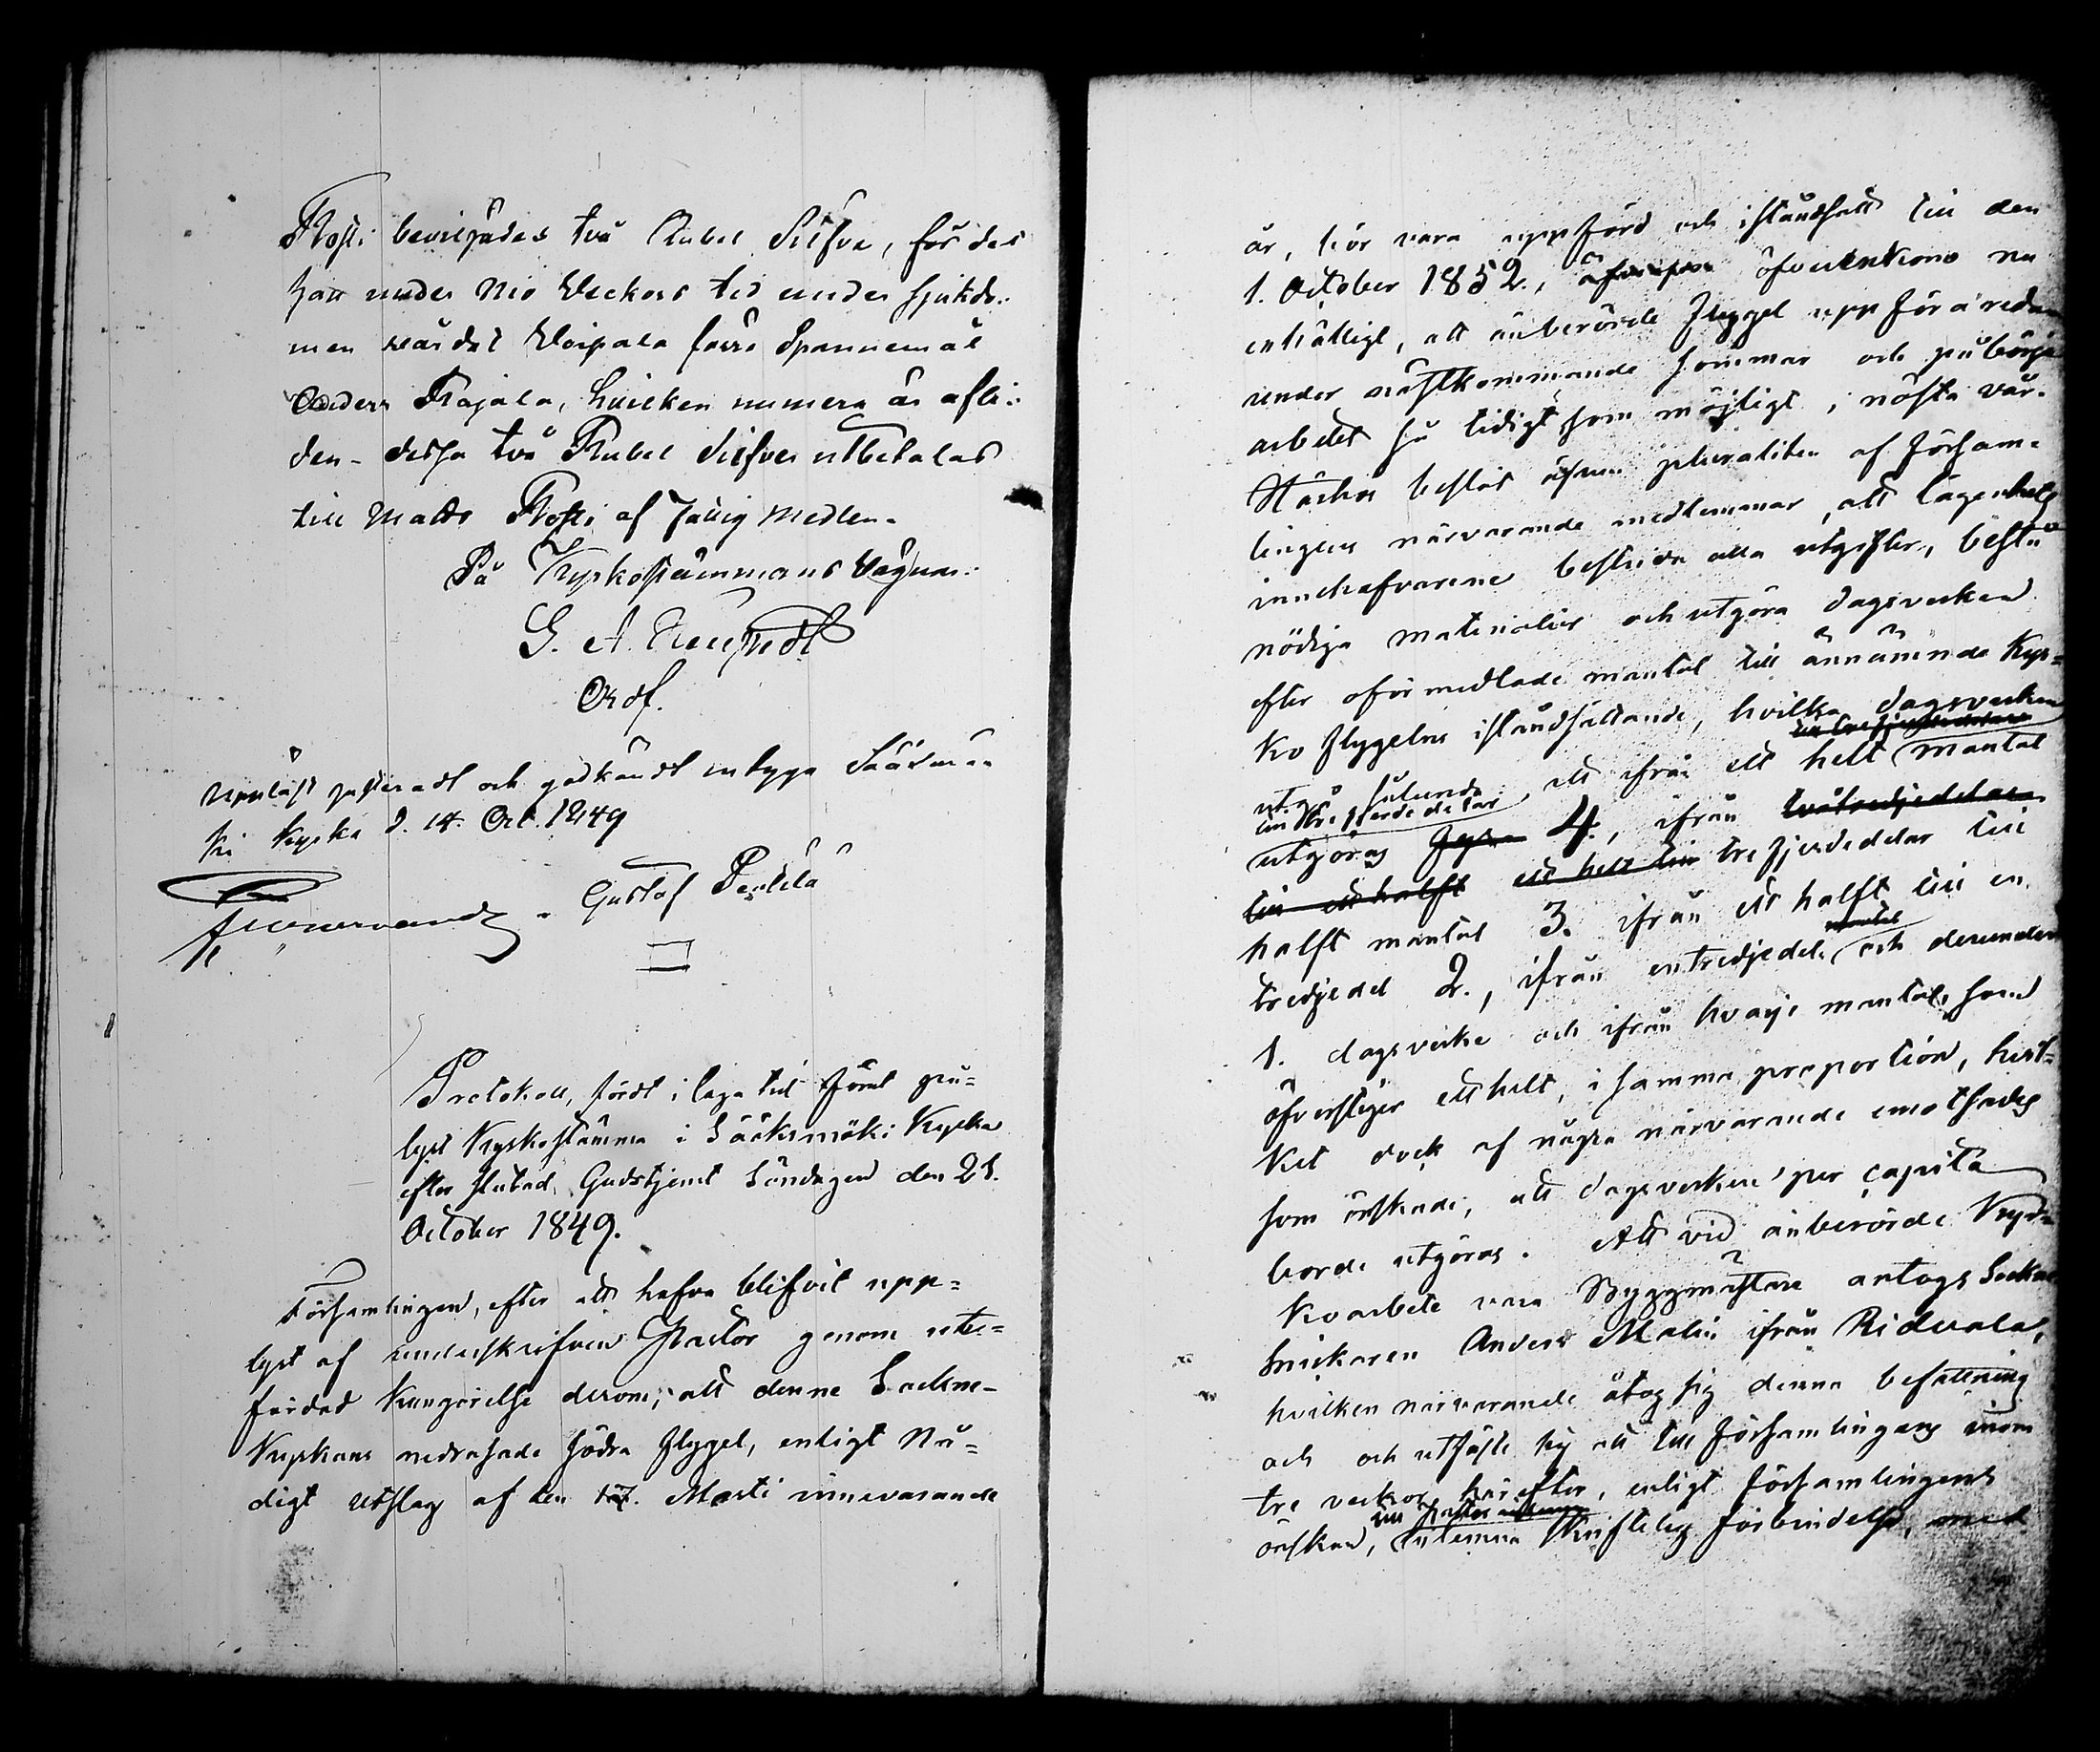 Rosti beviljades två Rubel Silfver, för det
han under nio Veckors tid under sjukdo-
men vårdat Voipala förra Spannemål
Anders Rajala, hvilken numera är afli-
den - dessa två Rubel Silfver utbetalas
till Matts Rosti af Fattig Medlen.
På Kyrkostämmans Vägnar:
G. A.
Ordf.
Uppläst justeradt och godkändt intyga Sääxmä-
ki Kyrka d. 14. Oct. 1849
Gustaf Pentilä
Protokoll, fördt i laga tid förut på-
lyst Kyrkostämma i Sääksmäki Kyrka
efter slutad Gudstjenst Söndagen den 21.
October 1849.
Församlingen, efter att hafva blifvit upp-
lyst af underskrifven Pastor genom utri-
färdad Kungörelse derom, att denne Sockne-
Kyrkans nedrasade södra flygel, enligt Nå-
digt Utslag af den 17. Marti innevarande
år, bör vara uppförd och iståndsatt till den
1. October 1852., öfverenskoms nu
enhälligt, att ånberörde flygel uppföra redan
under nästkommande sommar och påbörja
arbetet så tidigt som möjligt, nästa vår.
Härhos beslöt äfven pluraliten af försam-
lingens närvarande medlemmar, att lägenhets
innehafvarene bestrida alla utgifter, bestå
nödiga materialier och utgöra dagsverken
efter oförmedlade mantal till ännämnda Kyr-
ko flygelns iståndsättande, hvilka dagsverken
utgå sålunda, att ifrån ett helt mantal
till tre fjerdedelar
utgöras 4., ifrån tvåtredjedelar
till ett halft ett helt till tre fjerdedelar till
halft mantal 3. ifrån ett halft till en
tredjedel 2., ifrån entredjedels mantal och derunder
1. dagsverke och ifrån hvarje mantal, som
öfverstiger ett helt, i samma proportion, hvil-
ket dock af några närvarande emotsades
som önskade, att dagsverken per capita
borde utgöras. Att vid ånberörde Kyr-
koarbete vara Byggmästare antogs Sockne
Snickaren Anders Malin ifrån Ridvala,
hvilken närvarande åtog sig denna befattning
och och utfäste sig att till församlingens inom
tre veckor härefter, enligt församlingens
till Pastor
önskan, inlemna Skriftelig förbindelse, med